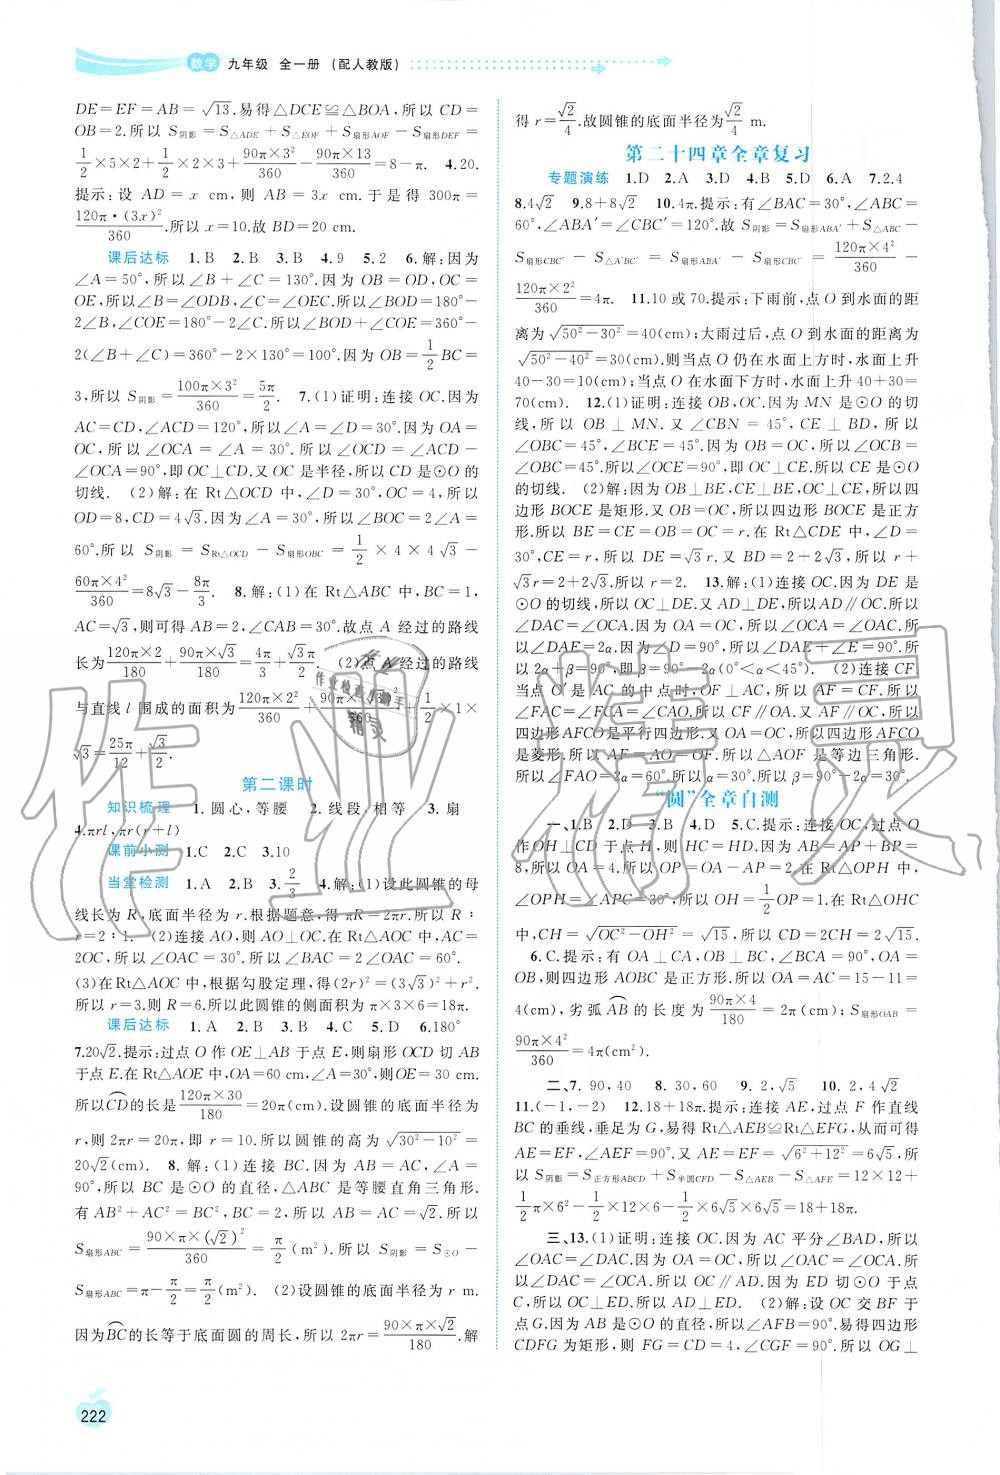 数学 九年级 全一册 (配人教版)
DE=EF=AB=√13.易得△DCE≌△BOA,所以 CD=
OB=2.所以 S阴影=S△ADE+S△EOF+S扇形AOF-S扇形DEF=
1/2×5×2+1/2×2×3+90π×3²/360-90π×13/360=8-π. 4.20.
提示:设 AD=x cm,则 AB=3x cm.于是得 300π=
120π·(3x)²/360.所以 x=10.故 BD=20 cm.
课后达标 1.B 2.B 3.B 4.9 5.2 6.解:因为
∠A=50°,所以∠B+∠C=130°.因为 OB=OD,OC=
OE,所以∠B=∠ODB,∠C=∠OEC.所以∠BOD=180°-
2∠B,∠COE=180°-2∠C.所以∠BOD+∠COE=360°-
2(∠B+∠C)=360°-2×130°=100°.因为 OB=1/2BC=
3,所以 S阴影=100π×3²/360=5π/2. 7.(1)证明:连接 OC.因为
AC=CD,∠ACD=120°,所以∠A=∠D=30°.因为 OA=
OC,所以∠OCA=∠A=30°.所以∠OCD=∠ACD-
∠OCA=90°,即 OC⊥CD.又 OC 是半径,所以 CD 是⊙O 的
切线. (2)解:在 Rt△OCD 中,∠D=30°,OC=4,所以
OD=8,CD=4√3.因为∠A=30°,所以∠BOC=2∠A=
60°.所以 S阴影=SRt△OCD-S扇形OBC=1/2×4×4√3-
60π×4²/360=8√3-8π/3. 8.解:(1)在 Rt△ABC 中,BC=1,
AC=√3,则可得 AB=2,∠CAB=30°.故点 A 经过的路线
长为120π×2/180+90π×√3/180=4π/3+√3π/2. (2)点 A 经过的路线
与直线 l 围成的面积为120π×2²/360+90π×(√3)²/360+1/2×1×
√3=25π/12+√3/2.
第二课时
知识梳理 1.圆心,等腰 2.线段,相等 3.扇
4.πrl,πr(r+l)
课前小测 1.C 2.C 3.10
当堂检测 1.A 2.B 3.2/3 4.解:(1)设此圆锥的母
线长为 R,底面半径为 r.根据题意,得 πR=2πr.所以 R∶
r=2∶1. (2)连接 AO,则 AO⊥OC.在 Rt△AOC 中,AC=
2OC,所以∠OAC=30°.所以∠BAC=2∠OAC=60°.
(3)在Rt△AOC 中,根据勾股定理,得(2r)²=(3√3)²+r².
所以 r=3,则 R=6.所以此圆锥的侧面积为 π×3×6=18π.
课后达标 1.A 2.B 3.B 4.C 5.D 6.180°
7.20√2.提示:过点 O 作 OE⊥AB 于点 E,则扇形 OCD 切 AB
于点 E.在 Rt△AOE 中,OA=60 cm,∠A=30°,则OE=30 cm.
所以CD的长是120π×30/180=20π(cm).设圆锥的底面半径为
r,则 2πr=20π,即 r=10.所以圆锥的高为√30²-10²=
20√2(cm). 8.解:(1)连接 BC.因为 AB=AC,∠A=
90°,所以 BC 是⊙O 的直径,△ABC 是等腰直角三角形.
有 AB²+AC²=BC²,BC=2,所以 AB=AC=√2.所以
S扇形ABC=90×π×(√2)²/360=π/2(m²).所以 S阴影=S⊙O-
S扇形ABC=π-π/2=π/2(m²). (2)设圆锥的底面半径为 r m.
因为BC的长等于底面圆的周长,所以 2πr=90×π×√2/180.解
得 r=√2/4.故圆锥的底面半径为√2/4 m.
第二十四章全章复习
专题演练 1.D 2.A 3.D 4.B 5.D 6.A 7.2.4
8.4√2 9.8+8√2 10.4π.提示:有∠BAC=30°,∠ABC=
60°,∠ABA′=∠CBC′=120°.故 S阴影=S扇形ABA′+S△ABC-
S扇形CBC′-S△A′BC′=S扇形ABA′-S扇形CBC′=120π×4²/360-
120π×2²/360=4π. 11.10 或 70.提示:下雨前,点 O 到水面的距
离为√50²-30²=40(cm);大雨过后,点 O 到水面的距离为
√50²-40²=30(cm).则当点 O 仍在水面上方时,水面上升
40-30=10(cm);当点 O 在水面下方时,水面上升 40+30=
70(cm). 12.(1)证明:连接 OB,OC.因为 MN 是⊙O 的切
线,所以 OB⊥MN.又∠CBN=45°,CE⊥BD,所以
∠OBC=45°,∠BCE=45°.因为 OB=OC,所以∠OCB=
∠OBC=45°.所以∠OCE=90°,即 OC⊥CE.所以 CE 是⊙O
的切线. (2)解:因为 OB⊥BE,CE⊥BE,OC⊥CE,所以四
边形 BOCE 是矩形.又 OB=OC,所以四边形 BOCE 是正方
形.所以 BE=CE=OB=OC=r.在 Rt△CDE 中,∠D=
30°,CE=r,所以 DE=√3r.又 BD=2+2√3,所以 r+
√3r=2+2√3.所以 r=2. 13.解:(1)连接 OC.因为 DE 是
⊙O 的切线,所以 OC⊥DE.又 AD⊥DE,所以 AD∥OC.所以
∠DAC=∠OCA.因为 OA=OC,所以∠OCA=∠OAC.所以
∠DAE=2α.因为∠D=90°,所以∠DAE+∠E=90°.所
以 2α+β=90°,即 β=90°-2α(0°<α<45°). (2)连接 CF.
当点 F 是 AC 的中点时,OF⊥AC,所以 AF=CF.所以
∠FAC=∠FCA=∠CAO.所以 CF∥OA.又 AF∥OC,所以
四边形 AFCO是平行四边形.又 OA=OC,所以四边形 AFCO
是菱形.所以 AF=AO=OF.所以△AOF 是等边三角形.
所以∠FAO=2α=60°.所以 α=30°.所以 β=90°-2α=30°.
“圆”全章自测
一、1.B 2.D 3.B 4.D 5.C.提示:连接 OC,过点 O
作 OH⊥CD 于点 H,则 HC=HD.因为 AB=AP+BP=
8,所以 OA=4.所以 OP=OA-AP=2.在 Rt△OPH 中,
∠OPH=∠APC=30°,所以 OH=1/2OP=1.在 Rt△OHC
中,CH=√OC²-OH²=√15,所以 CD=2CH=2√15.
6.C.提示:有 OA⊥CA,OB⊥BC,∠BCA=90°,OA=
OB,则四边形 AOBC 是正方形.所以 OA=AC=15-11=
4(cm),劣弧AB的长度为90π×4/180=2π(cm);S扇形OAB=
90π×4²/360=4π(cm²).
二、7. 90,40 8. 30,60 9. 2,√5 10. 2,4√2
11.(-1,-2) 12.18+18π.提示:连接 AE,过点 F 作直线
BC 的垂线,垂足为 G,易得 Rt△AEB≌Rt△EFG,从而可得
AE=EF,∠AEF=90°.又 AE=EF=√6²+12²=6√5,所
以 S阴影=S正方形ABCD+S半圆CFD-S△AEB-S△AFE=12×12+
1/2π×6²-1/2×12×6-1/2×6√5×6√5=18+18π.
三、13.(1)证明:连接 OC.因为 AC 平分∠BAD,所以
∠OAC=∠DAC.因为 OA=OC,所以∠OAC=∠OCA.所以
∠DAC=∠OCA.所以 OC∥AD.因为 ED 切⊙O 于点
C,所以 OC⊥ED.所以 AD⊥ED. (2)解:设 OC 交 BF 于
点 G.因为 AB 是⊙O 的直径,所以∠AFB=90°.易得四边形
CDFG 为矩形,则 FG=CD=4,∠OGF=90°,所以 OG⊥
222
作业精灵
作业检查小助手
精灵